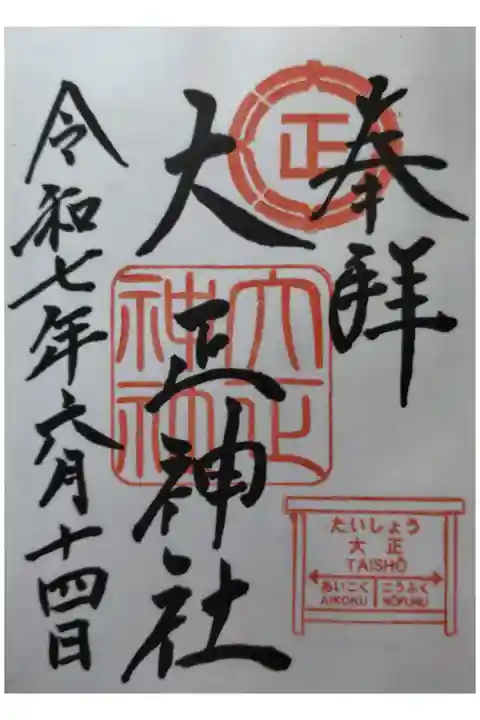 奉拝
大
正
大正神社
大正
神社
令和七年六月十四日
たいしょう
大正
TAISHŌ
あいこく
こうふく
AIKOKU
KŌFUKU